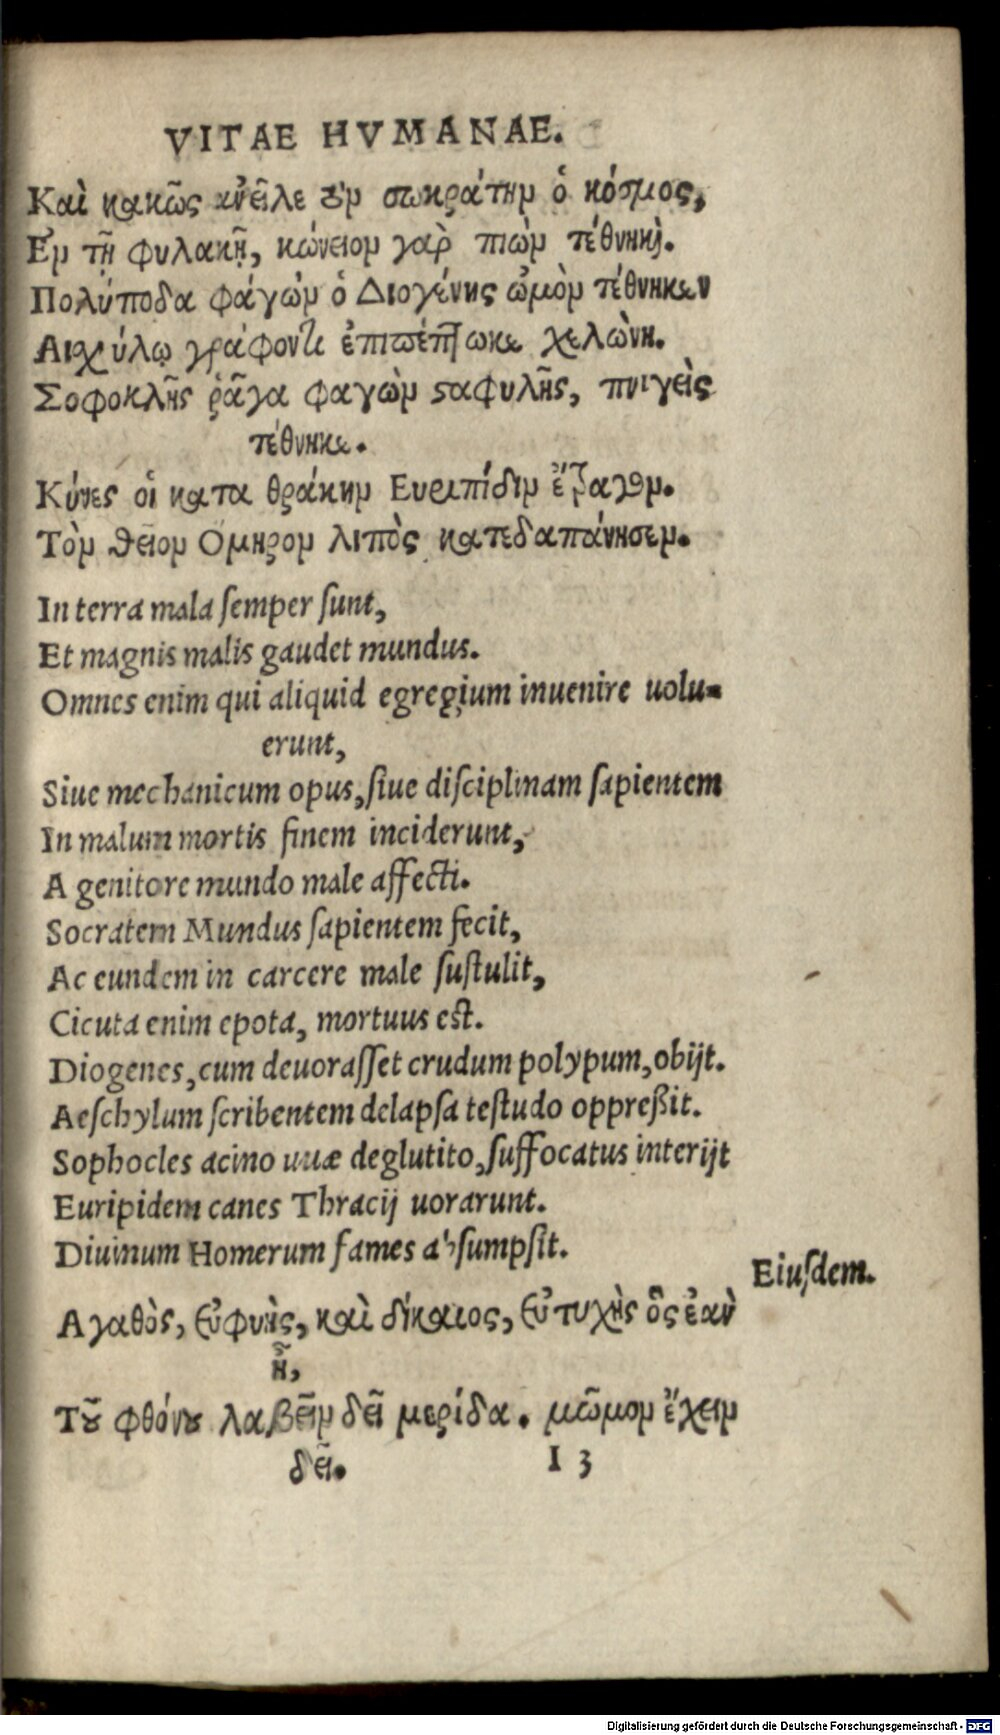 VITAE HVMANAE.
Καὶ κακῶς ἀνεῖλε τὸν σωκράτην ὁ κόσμος,
Ἐν τῇ φυλακῇ, κώνειον γὰρ πιὼν τέθνηκε.
Πολύποδα φάγὼν ὁ Διογένης ὠμὸν τέθνηκεν
Αισχύλῳ γράφοντι ἐπιπέπτωκε χελώνη.
Σοφοκλῆς ῥᾶγα φαγὼν σταφυλῆς, πνιγεὶς
τέθνηκε.
Κύνες οἱ κατα θράκην Ευριπίδην ἔτρωγον.
Τὸν θεῖον Ὅμηρον λιπὸς κατεδαπάνησεν.
In terra mala ſemper ſunt,
Et magnis malis gaudet mundus.
Omnes enim qui aliquid egregium inuenire uolu-
erunt,
Siue mechanicum opus, ſiue diſciplinam ſapientem
In malum mortis finem inciderunt,
A genitore mundo male affecti.
Socratem Mundus ſapientem fecit,
Ac eundem in carcere male ſuſtulit,
Cicuta enim epota, mortuus eſt.
Diogenes, cum deuoraſſet crudum polypum, obijt.
Aeſchylum ſcribentem delapſa teſtudo oppreßit.
Sophocles acino uuæ deglutito, ſuffocatus interijt
Euripidem canes Thracij uorarunt.
Diuinum Homerum fames abſumpſit.
Eiuſdem.
Αγαθὸς, εὐφυὴς, καὶ δίκαιος, εὐτυχὴς ὃς ἐὰν
ᾖ,
Τοῦ φθόνου λαβεῖν δεῖ μερίδα. μῶμον ἔχειν
δεῖ. I 3
Digitalisierung gefördert durch die Deutsche Forschungsgemeinschaft - DFG